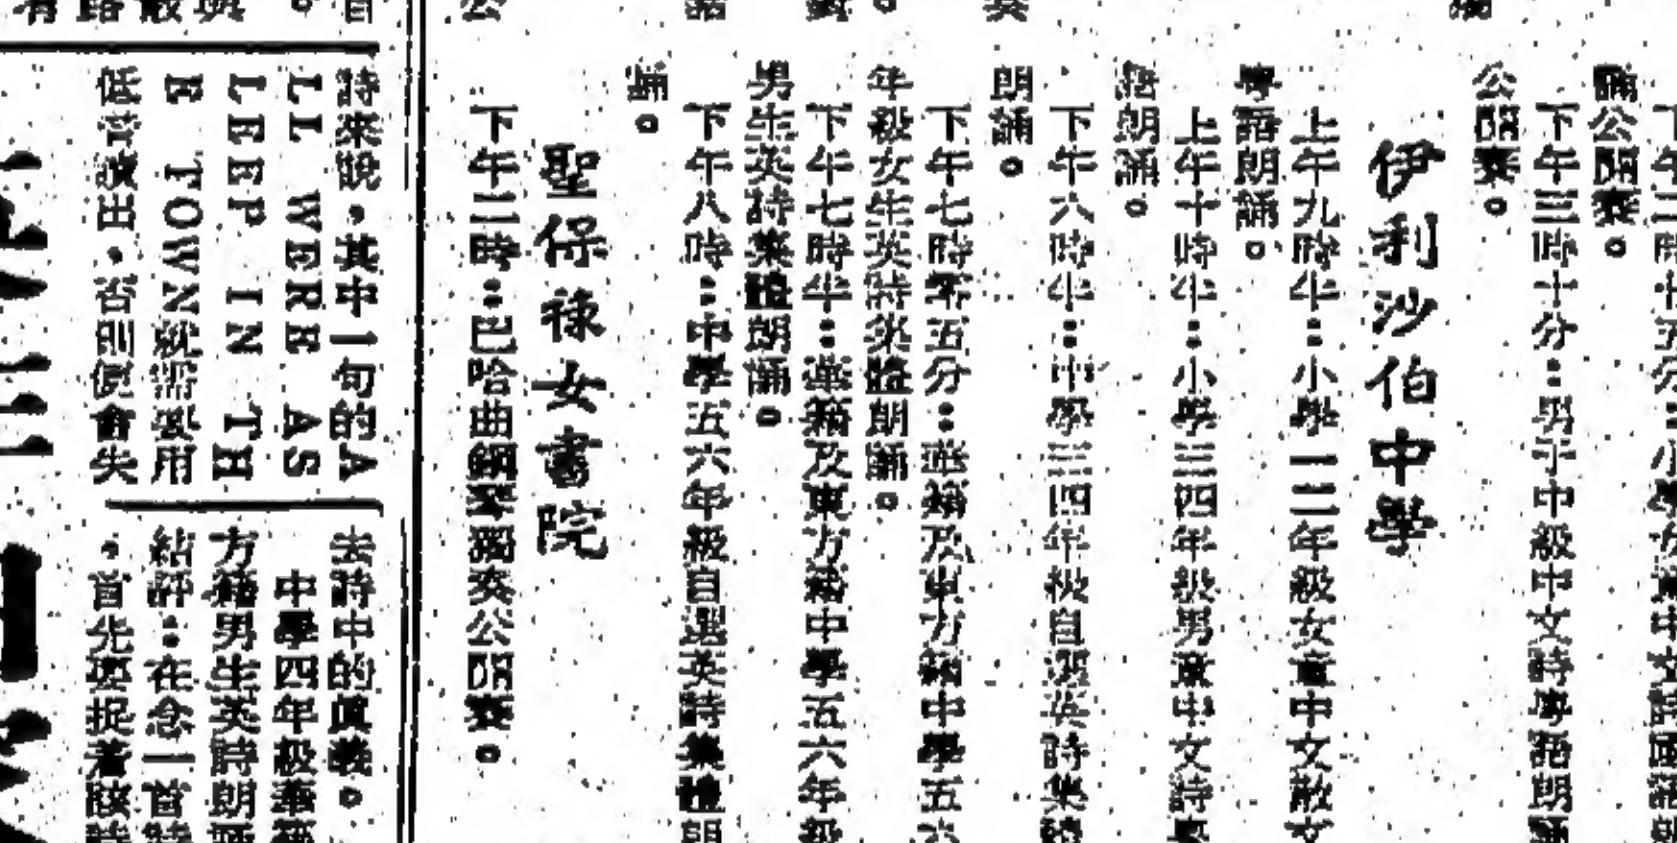 下午三時十分：男子中級中文詩粵語朗誦
公開賽。
伊利沙伯中學
上午九時半：小學一二年級女童中文散文
粵語朗誦。
上午十時半：小學三四年級男童中文詩粵
語朗誦。
下午六時半：中學三四年級自選英詩集體
朗誦。
下午七時零五分：華籍及東方籍中學五六
年級女生英詩集體朗誦。
下午七時半：華籍及東方籍中學五六年級
男生英詩集體朗誦。
下午八時：中學五六年級自選英詩集體朗
誦。
聖保祿女書院
下午二時：巴哈曲鋼琴獨奏公開賽。
時來說，其中一句的A
LL WERE AS
LEEP IN TH
E TOWN就需要用
低音讀出，否則便會失
去詩中的真義。
中學四年級華籍
方籍男生英詩朗誦
結評：在念一首詩
，首先要捉着該詩